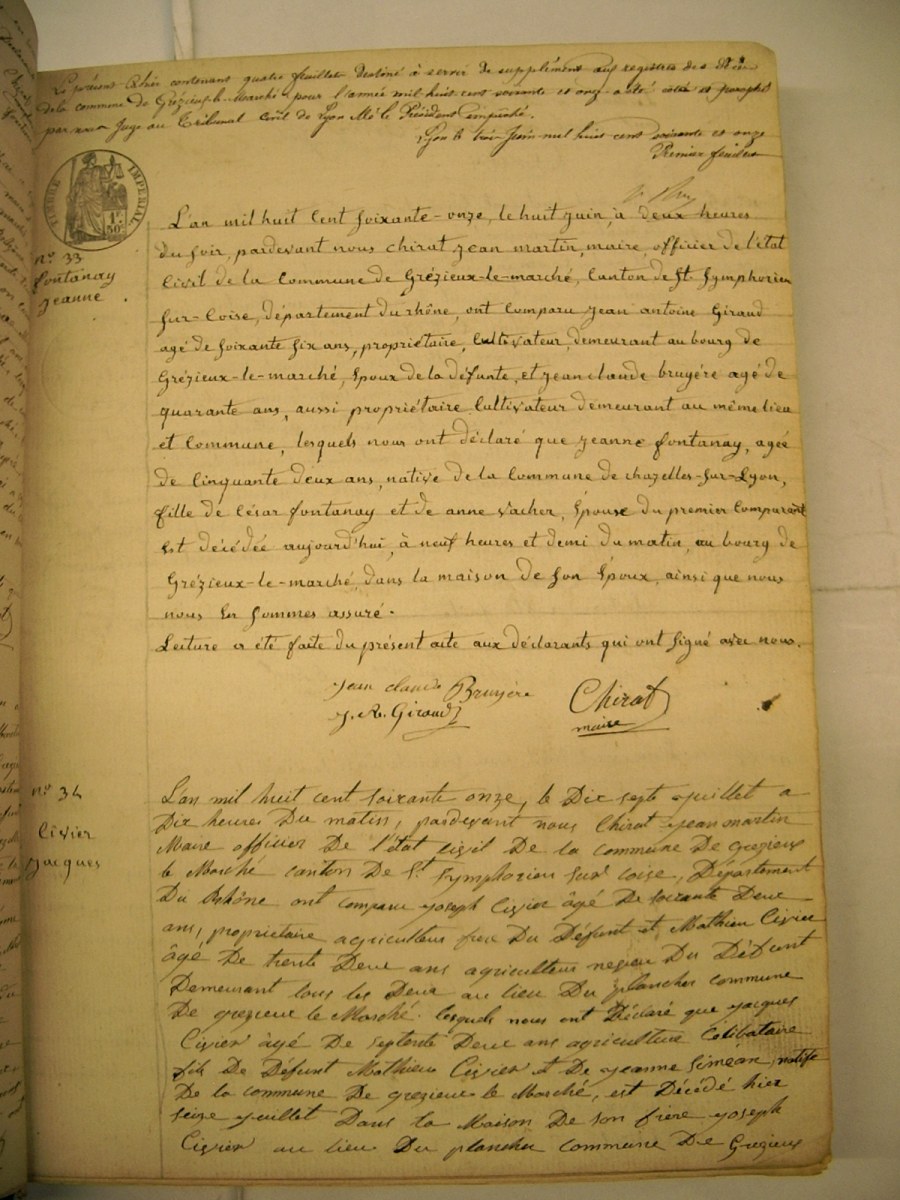 Le présent cahier contenant quatre feuillets destiné à servir de supplément aux registres des Décès
de la commune de Grézieu-le-Marché pour l'année mil huit cent soixante et onze a été coté et paraphé
par nous Juge au Tribunal civil de Lyon M. le Président empêché.
Lyon le trois Juin mil huit cent soixante et onze
Premier feuillet
TIMBRE IMPERIAL
1F 50c
n.° 33
fontanay
jeanne
L'an mil huit cent soixante-onze, le huit juin, à deux heures
du soir, pardevant nous chirat jean martin, maire, officier de l'état
civil de la commune de Grézieux-le-marché, canton de St. Symphorien
sur-Coise, département du rhône, ont comparu jean antoine Giraud
agé de soixante six ans, propriétaire, cultivateur, demeurant au bourg de
Grézieux-le-marché, époux de la défunte, et jean claude bruyére agé de
quarante ans, aussi propriétaire cultivateur demeurant au même lieu
et commune, lesquels nous ont déclaré que jeanne fontanay, agée
de cinquante deux ans, native de la commune de chazelles-sur-Lyon,
fille de César fontanay et de anne vacher, épouse du premier comparant
est décédée aujourd'hui, à neuf heures et demi du matin, au bourg de
Grézieux-le-marché dans la maison de son époux, ainsi que nous
nous en sommes assuré.
Lecture a été faite du présent acte aux déclarants qui ont signé avec nous.
jean claude Bruyére
J. A. Giraud
Chirat
maire
n.° 34
Civier
jacques
L'an mil huit cent soixante onze, le Dix sept juillet a
Dix heures Du matin, pardevant nous Chirat jean martin
Maire officier De l'état civil De la commune De grezieux
le Marché canton De St. Symphorien sur coise, Département
Du Rhône ont comparu joseph Civier âgé De soixante Deux
ans, propriétaire agriculteur frere Du Défunt et Mathieu Civier
âgé De trente Deux ans agriculteur neveu Du Défunt
Demeurant tous les Deux au lieu Du plancher commune
De grezieux le Marché. lesquels nous ont Déclaré que jacques
Civier âgé De septente Deux ans agriculture Célibataire
fils De Défunt Mathieu Civier et De jeanne Simean, natif
De la commune De grezieux le Marché, est Décédé hier
seize juillet Dans la Maison De son frère joseph
Civier au lieu Du plancher commune De Grezieux